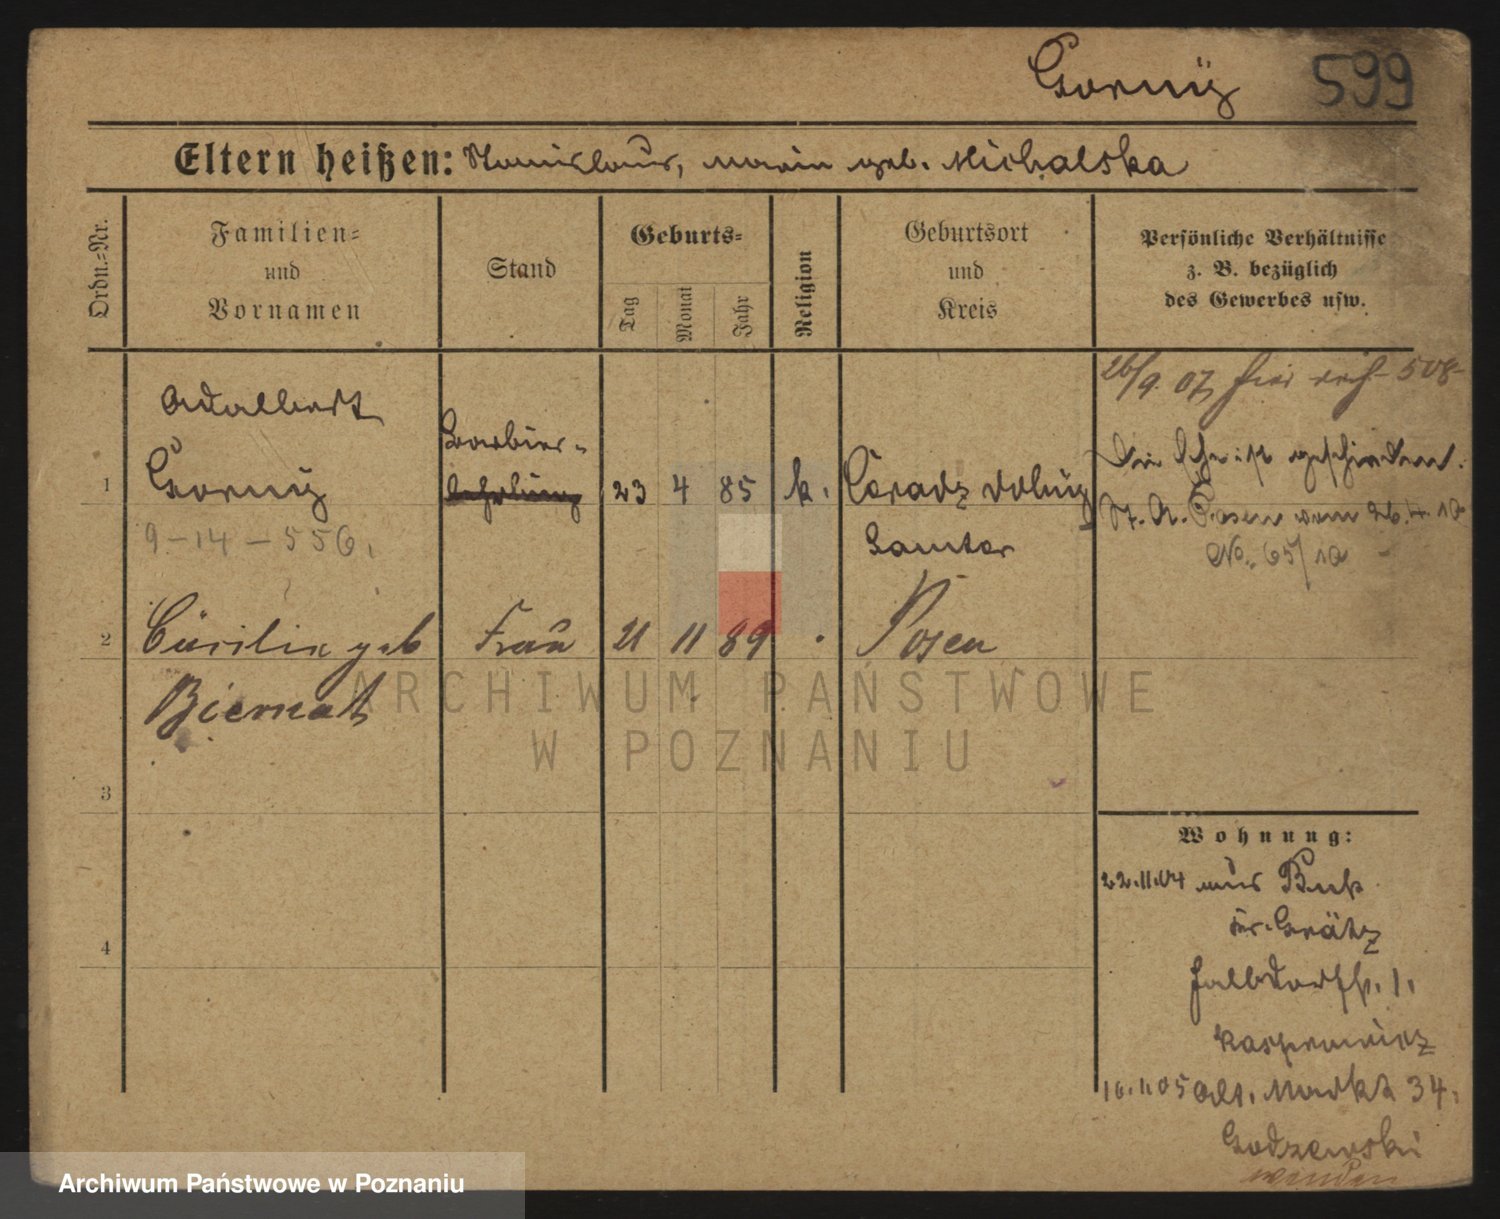 Gorny 599
Eltern heißen: Stanislaus, Maria geb. Michalska
Ordn.-Nr.
Familien-
und
Vornamen
Stand
Geburts-
Tag
Monat
Jahr
Religion
Geburtsort
und
Kreis
Persönliche Verhältnisse
z. B. bezüglich
des Gewerbes usw.
26/9. 07, 508
Adalbert
Barbier-
1 Gorny lehrling 23 4 85 k. Ceradz dolny
9-14-556.
Samter
Die Ehe ist geschieden.
St. A. Posen vom 26.4.10
No. 65/10
2 Cäcilie geb Frau 21 11 89 Posen
Biernat
3
4
Wohnung:
22.11.04 aus Buk
Kr. Grätz
Halbdorfstr. 1.
Kasprowicz
16.1.05 Alt. Markt 34.
Godzewski
wenden
ARCHIWUM PAŃSTWOWE
W POZNANIU
Archiwum Państwowe w Poznaniu